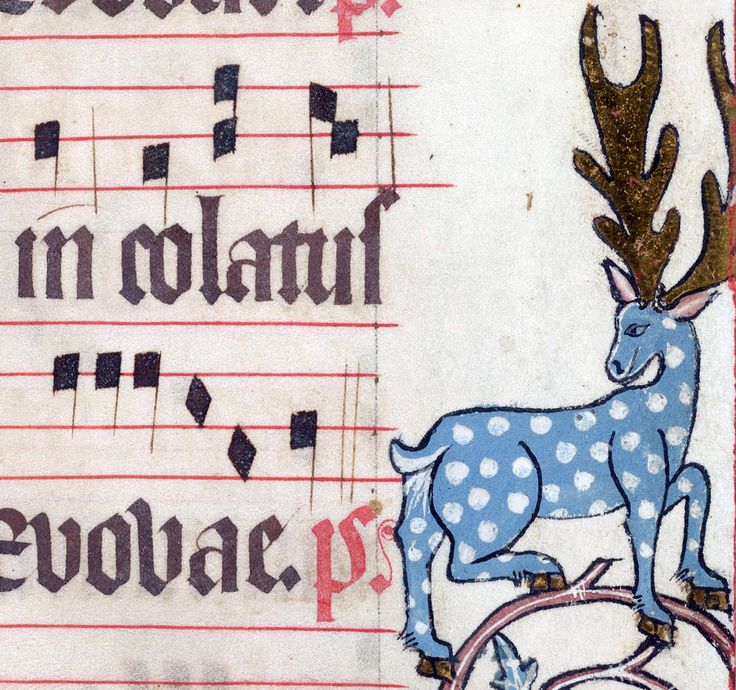 in colatuſ
Evovae. ps